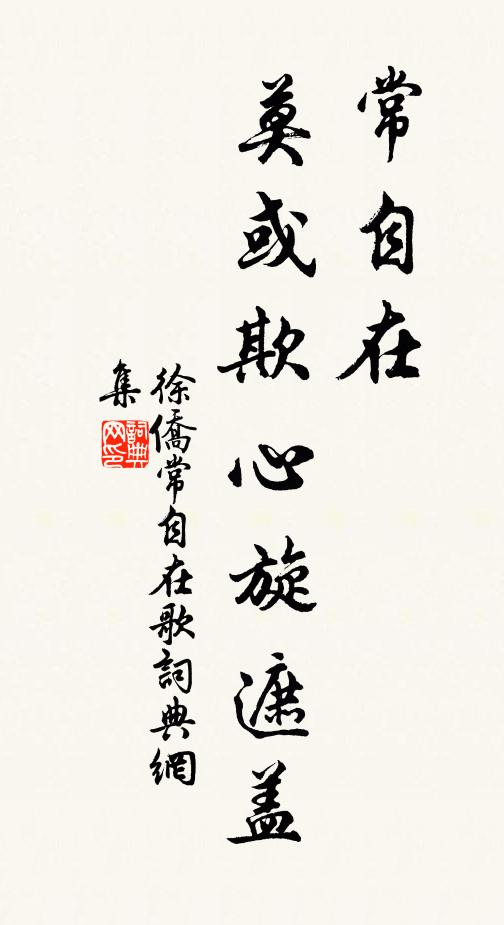 常自在
莫或欺心旋遮盖
徐僑常自在歌詞典網
集
詞典
网印